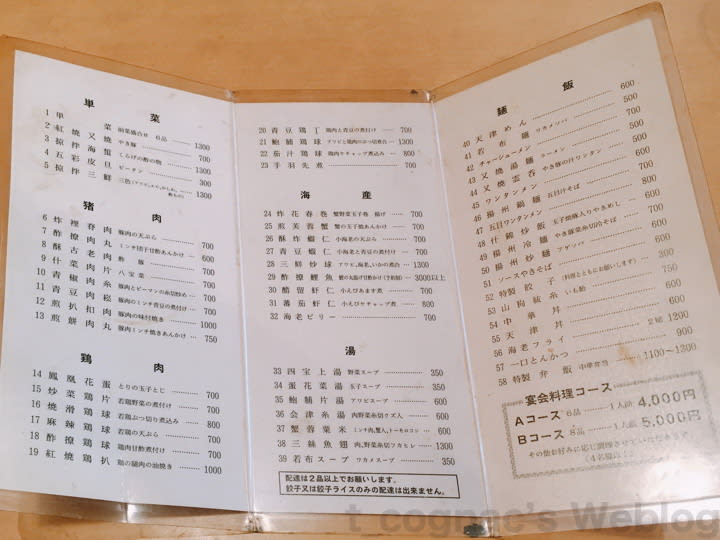 単菜
1 単菜 前菜盛合せ 6品 1300
2 紅焼叉焼 やき豚 700
3 涼拌海蜇 くらげの酢の物 700
4 五彩皮旦 ピータン 300
5 涼拌三鮮 1300
猪肉
6 炸裡脊肉 豚肉の天ぷら 700
7 酢撩肉丸 ミンチ団子甘酢あんかけ 700
8 酥古老肉 酢豚 700
9 什菜肉片 八宝菜 700
10 青椒肉糸 豚肉とピーマンの糸切炒め 700
11 青豆肉崧 豚肉のミンチ青豆の煮付け 700
12 煎扒扣肉 豚肉の味付焼き 1000
13 煎餅肉丸 豚肉ミンチ焼きあんかけ 750
鶏肉
14 鳳凰花蛋 とりの玉子とじ 700
15 炒菜鶏片 若鶏野菜の煮付け 700
16 焼滑鶏球 若鶏ぶつ切り煮込み 800
17 麻辣鶏球 若鶏の天ぷら 700
18 酢撩鶏球 鶏肉甘酢煮付け 700
19 紅焼鶏扒 鶏の腿肉の油焼き 1000
20 青豆鶏丁 鶏肉と青豆の煮付け 700
21 鮑脯鶏球 アワビと鶏肉のぶつ切煮合 1300
22 茄汁鶏球 鶏肉ケチャップ煮込み 800
23 手羽先煮 700
海産
24 炸花春巻 蟹野菜玉子巻 揚げ 700
25 煎芙蓉蟹 蟹の玉子焼あんかけ 700
26 酥炸蝦仁 小海老の天ぷら 700
27 青豆蝦仁 小海老と青豆の煮付け 700
28 三鮮炒球 アワビ、海老、いかの煮合 1300
29 酢撩鯉魚 3000以上
30 醋留虾仁 小えびあます煮 700
31 蕃茄虾仁 小えびケチャップ煮 800
32 海老ビリー 700
湯
33 四宝上湯 野菜スープ 350
34 蛋花菜湯 玉子スープ 350
35 鮑脯片湯 アワビスープ 650
36 会津糸湯 肉野菜糸切クズ入 600
37 蟹蓉粟米 ミンチ肉、蟹入、トーモロコシ 600
38 三絲魚翅 肉、野菜糸切フカヒレ 1300
39 若布スープ ワカメスープ 350
配達は2品以上でお願いします。
餃子又は餃子ライスのみの配達は出来ません。
麺飯
40 天津めん 600
41 若布麺 ワカメソバ 500
42 チャーシューメン 700
43 叉焼湯麺 ラーメン 500
44 叉焼雲呑 やき豚の入ワンタン
45 ワンタンメン
46 揚州鍋麺 五目汁そば
47 五目ワンタンメン
48 什錦炒飯 玉子焼豚入りやきめし
49 揚州冷麺 やき豚菜糸切冷そば
50 揚州炒麺 アゲソバ
51 ソースやきそば
52 特製餃子 (料理とともにお願いします)
53 山拘絃糸 いも飴
54 中華丼
55 天津丼
56 海老フライ
57 一口とんかつ 900
58 特製弁飯 中華弁当 1100〜1300
宴会料理コース
Aコース 6品 1人前 4,000円
Bコース 8品 1人前 5,000円
その他お好みに応じ調理させていただきます。
(4名様より)
t_cognac's Weblog